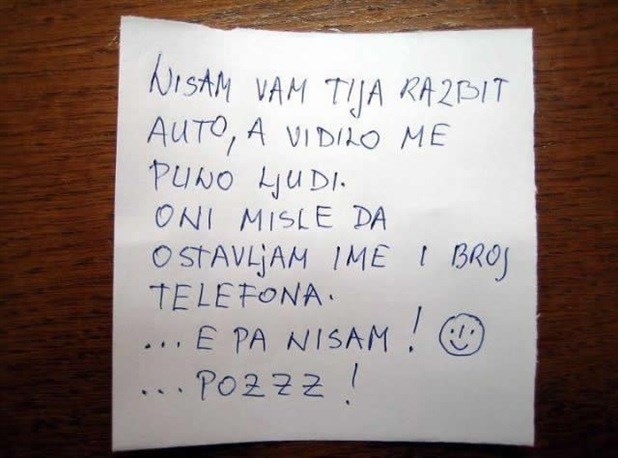 NISAM VAM TIJA RAZBIT
AUTO, A VIDILO ME
PUNO LJUDI.
ONI MISLE DA
OSTAVLJAM IME I BROJ
TELEFONA.
...E PA NISAM!
...POZZZ!